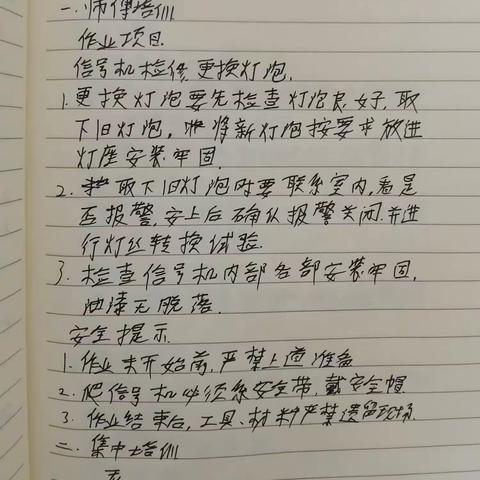 一.师傅培训
作业项目
信号机检修,更换灯泡.
1.更换灯泡要先检查灯泡良好,取
下旧灯泡,将新灯泡按要求放进
灯座安装牢固.
2.取下旧灯泡时要联系室内,看是
否报警,安上后确认报警关闭.并进
行灯丝转换试验.
3.检查信号机内部各部安装牢固,
油漆无脱落.
安全提示
1.作业未开始前,严禁上道准备
2.爬信号机必须系安全带,戴安全帽
3.作业结束后,工具、材料严禁遗留现场.
二.集中培训
无